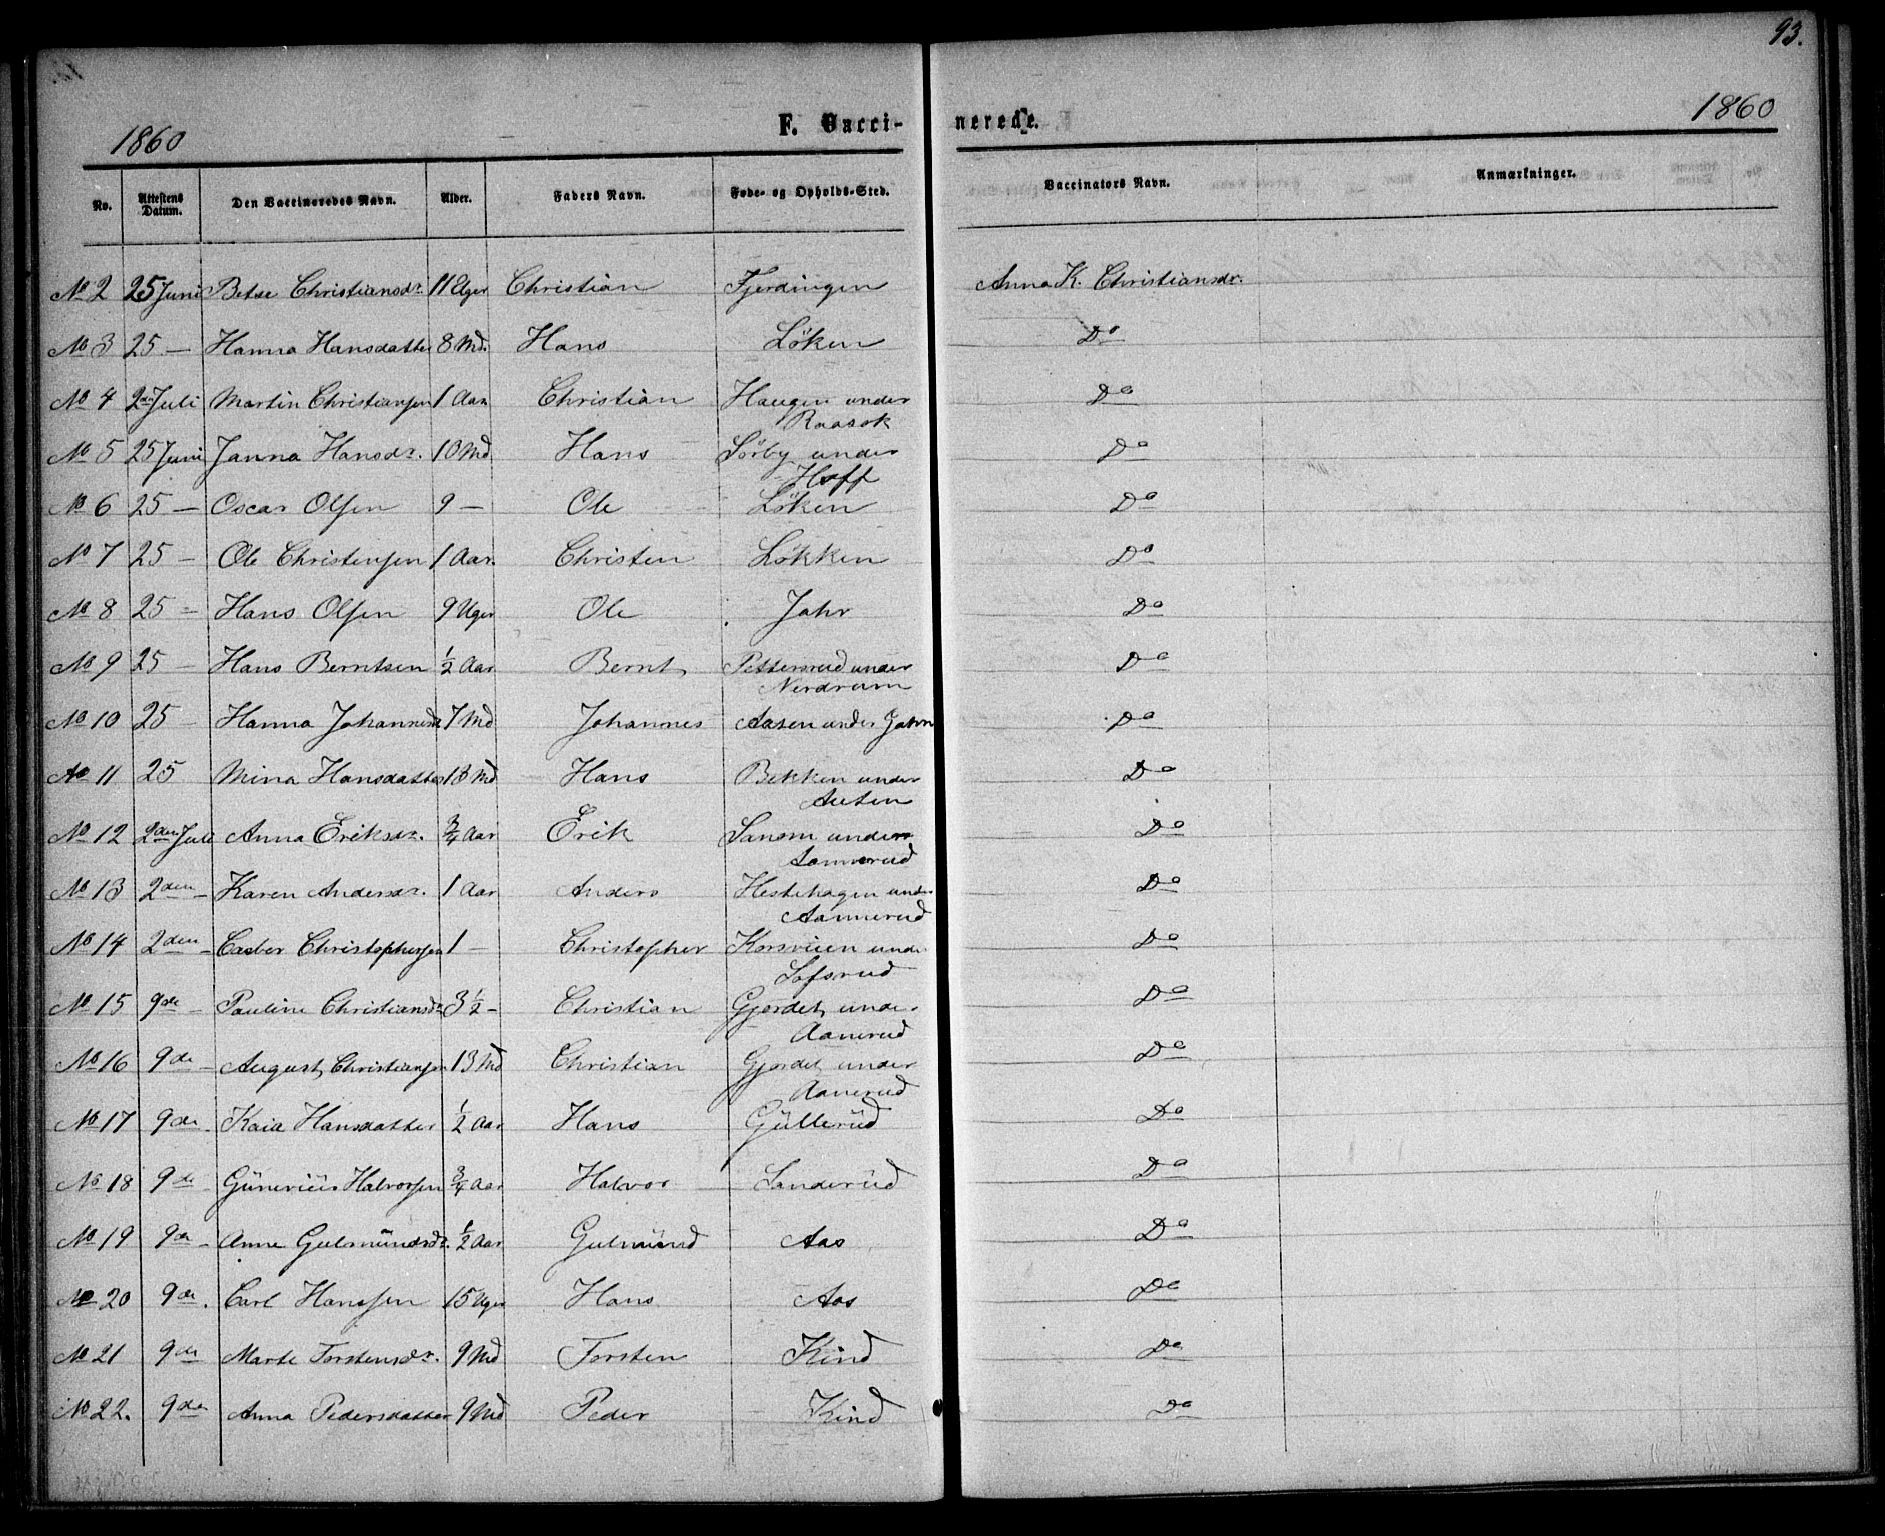 93.
1860 F. Vacci- nerede. 1860
No. Attestens Datum. Den Vaccineredes Navn. Alder. Faders Navn. Føde- og Opholds-Sted. Vaccinators Navn. Anmærkninger.
No 2 25 Juni Betse Christiansdr. 11 Uger Christian Fjerdingen Anna K. Christiansdr.
No 3 25 — Hanna Hansdatter 8 Md. Hans Löken Do
No 4 2den Juli Martin Christiansen 1 Aar Christian Haugen under
Raasok Do
No 5 25 Juni Janna Hansdr. 10 Md Hans Sörby under
Hoff Do
No 6 25 — Oscar Olsen 9 — Ole Löken Do
No 7 25 — Ole Christensen 1 Aar. Christen Løkken Do
No 8 25 — Hans Olsen 9 Uger Ole Jahr Do
No 9 25 — Hans Berntsen ½ Aar Bernt Pettersrud under
Nerdrum Do
No 10 25 — Hanna Johannesd 7 Md Johannes Aasen under Jahr Do
No 11 25 Mina Hansdatter 13 Md Hans Bekken under
Austen Do
No 12 2den Juli Anna Eriksdr. ¾ Aar Erik under
Aannerud Do
No 13 2den — Karen Andersdr. 1 Aar Anders Hestehagen under
Aannerud Do
No 14 2den — Casber Christophersen 1 — Christopher Korsveien under
Lofsrud Do
No 15 9de — Pauline Christiansdr 3 ½ — Christian Gjordet under
Aanerud Do
No 16 9de — August Christiansen 13 Md Christian Gjordet under
Aanerud Do
No 17 9de. Kaia Hansdatter ½ Aar Hans Gullerud Do
No 18 9de Halvorsen ¾ Aar Halvor Sanderud Do
No 19 9de — Anne Gulmundsdr. ½ Aar Gulmund Aas Do
No 20 9de. Carl Hanssen 15 Uger Hans Aas Do
No 21 9de Marte Torstensdr. 9 Md Torsten Kind Do
No 22. 9de Anna Pedersdatter 9 Md Peder Kind Do